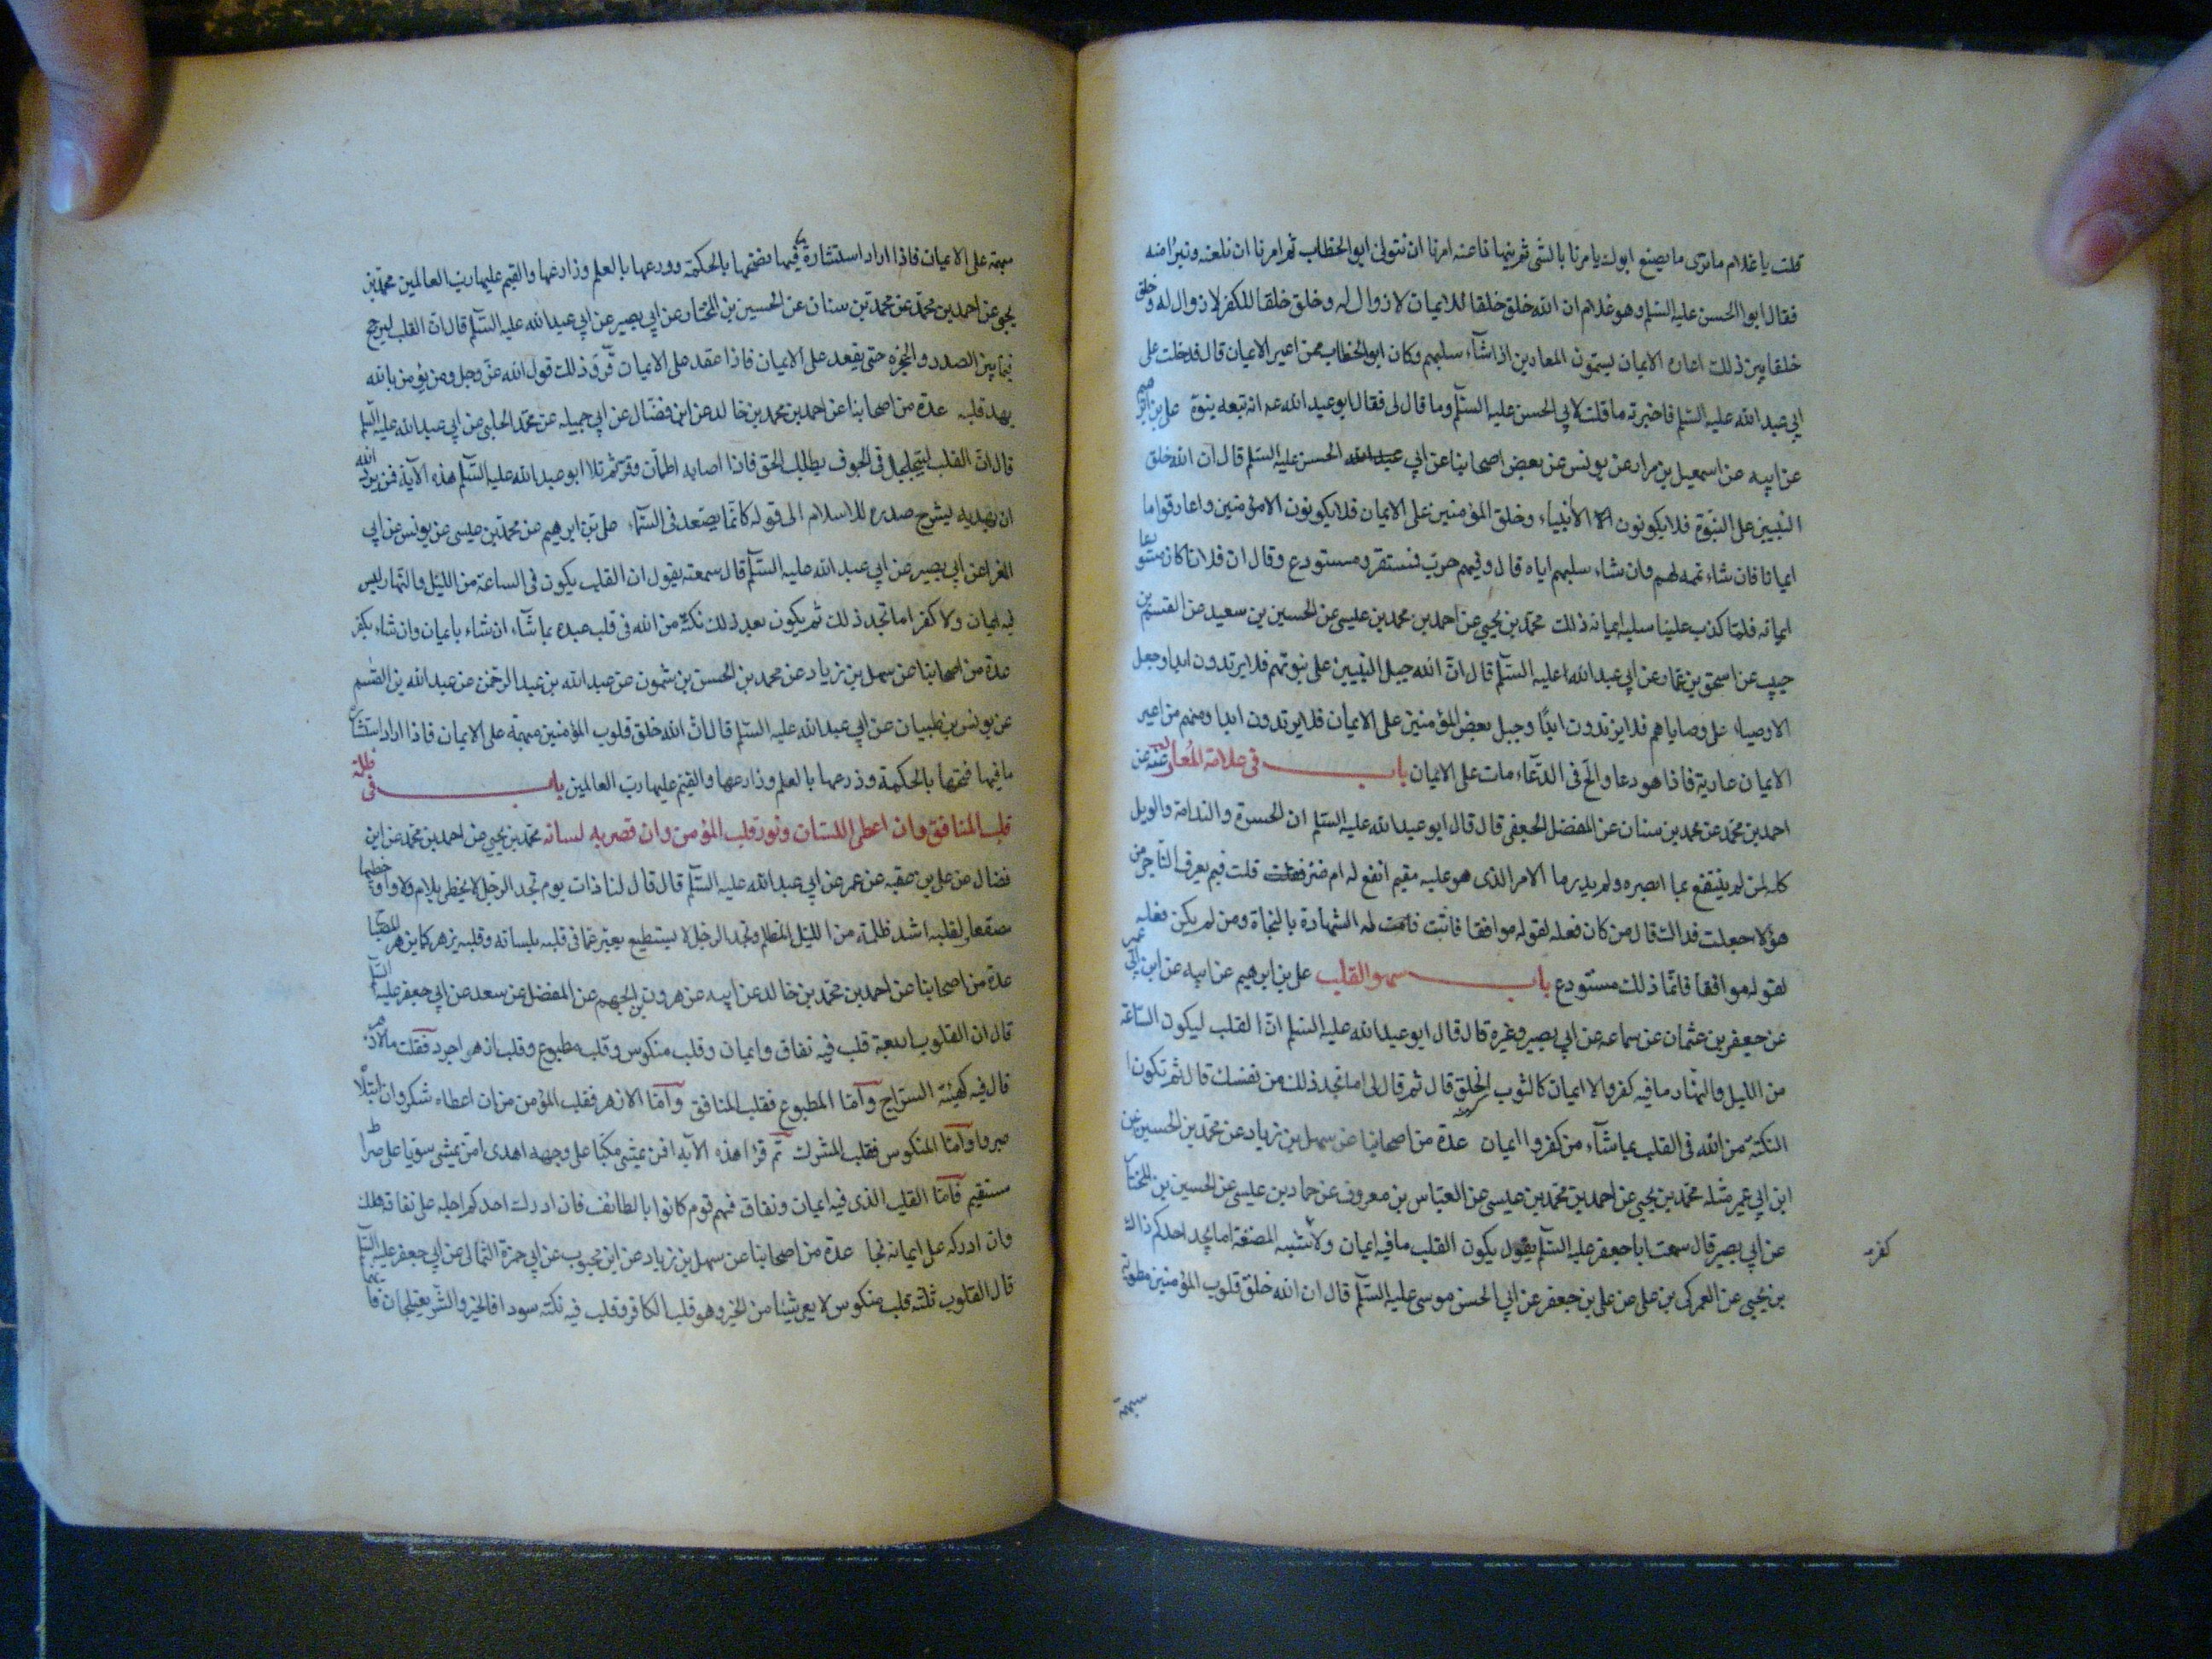 قلت يا غلام ما ترى ما يصنع ابوك يامرنا بالشئ ثم ينهانا عنه امرنا ان نتولى ابو الخطاب ثم امرنا ان نلعنه ونبرا منه
فقال ابو الحسن عليه السلم وهو غلام ان الله خلق خلقا للايمان لا زوال له وخلق خلقا للكفر لا زوال له وخلق
خلقا بين ذلك اعاره الايمان يسمون المعارين اذا شآء سلبهم وكان ابو الخطاب ممن اعير الايمان قال فدخلت على
ابي عبد الله عليه السلم فاخبرته ما قلت لابي الحسن عليه السلم وما قال لى فقال ابو عبد الله عه انه نبعه نبوة على بن ابرهيم
عن ابيه عن اسمعيل بن مرار عن يونس عن بعض اصحابنا عن ابي عبد الله الحسن عليه السلم قال ان الله خلق
النبيين على النبوة فلا يكونون الا الانبياء وخلق المؤمنين على الايمان فلا يكونون الا مؤمنين واعار قوما
ايمانا فان شاء تممه لهم وان شاء سلبهم اياه قال وفيهم جرت فمستقر ومستودع وقال ان فلانا كان مستودعا
ايمانه فلما كذب علينا سلبه ايمانه ذلك محمد بن يحيى عن احمد بن محمد بن عيسى عن الحسين بن سعيد عن القسم بن
حبيب عن اسحق بن عمار عن ابي عبد الله عليه السلم قال ان الله جبل النبيين على نبوتهم فلا يرتدون ابدا وجعل
الاوصياء على وصاياهم فلا يرتدون ابدًا وجبل بعض المؤمنين على الايمان فلا يرتدون ابدا ومنهم من اعير
الايمان عارية فاذا هو دعا والح فى الدعاء مات على الايمان باب فى علامة المعار عنه عن
احمد بن محمد عن محمد بن سنان عن المفضل الجعفى قال قال ابو عبد الله عليه السلم ان الحسرة والندامة والويل
كله لمن لم ينتفع بما ابصره ولم يدر ما الامر الذى هو عليه مقيم انفع له ام ضر قلت فبم يعرف الناجى من
هؤلا جعلت فداك قال من كان فعله لقوله موافقا فاثبت له الشهادة بالنجاة ومن لم يكن فعله
لقوله موافقا فانما ذلك مستودع باب سهو القلب على بن ابرهيم عن ابيه عن ابن ابي عمير
عن جعفر بن عثمان عن سماعه عن ابي بصير وغيره قال قال ابو عبد الله عليه السلم ان القلب ليكون الساعة
من الليل والنهار ما فيه كفر ولا ايمان كالثوب الخلق قال ثم قال لى اما تجد ذلك من نفسك قال ثم تكون
النكتة من الله فى القلب بما شآء من كفر وايمان عدة من اصحابنا عن سهل بن زياد عن محمد بن الحسين عن
ابن ابي عمير مثله محمد بن يحيى عن احمد بن محمد بن عيسى عن العباس بن معروف عن حماد بن عيسى عن الحسين بن المختار
عن ابي بصير قال سمعت ابا جعفر عليه السلم يقول يكون القلب ما فيه ايمان ولا شبه المضغة اما يجد احدكم ذاك
كفر
بن يحيى عن العمركى بن على عن على بن جعفر عن ابي الحسن موسى عليه السلم قال ان الله خلق قلوب المؤمنين مطوية
مبهمة
مبهمة على الايمان فاذا اراد استنارة ما فيها نضحها بالحكمة وزرعها بالعلم وزارعها والقيم عليها رب العالمين محمد بن
يحيى عن احمد بن محمد عن محمد بن سنان عن الحسين بن المختار عن ابي بصير عن ابي عبد الله عليه السلم قال ان القلب ليرجج
فيما بين الصدر والحنجرة حتى يعقد على الايمان فاذا عقد على الايمان قر وذلك قول الله عز وجل ومن يؤمن بالله
يهد قلبه عدة من اصحابنا عن احمد بن محمد بن خالد عن ابن فضال عن ابي جميله عن محمد الحلبى عن ابي عبد الله عليه السلم
قال ان القلب ليتجلجل فى الجوف يطلب الحق فاذا اصابه اطمان وقر ثم تلا ابو عبد الله عليه السلم هذه الآية فمن يرد الله
ان يهديه يشرح صدره للاسلام الى قوله كانما يصعد فى السماء على بن ابرهيم عن محمد بن عيسى عن يونس عن ابي
المغرا عن ابي بصير عن ابي عبد الله عليه السلم قال سمعته يقول ان القلب يكون فى الساعة من الليل والنهار ليس
فيه ايمان ولا كفر اما تجد ذلك ثم يكون بعد ذلك نكتة من الله فى قلب عبده بما شآء ان شاء بايمان وان شاء بكفر
عدة من اصحابنا عن سهل بن زياد عن محمد بن الحسن بن شمون عن عبد الله بن عبد الرحمن عن عبد الله بن القسم
عن يونس بن ظبيان عن ابي عبد الله عليه السلم قال ان الله خلق قلوب المؤمنين مبهمة على الايمان فاذا اراد استنارة
ما فيها فتحها بالحكمة وزرعها بالعلم وزارعها والقيم عليها رب العالمين باب فى ظلمة
قلب المنافق وان اعطى اللسان ونور قلب المؤمن وان قصر به لسانه محمد بن يحيى عن احمد بن محمد عن ابن
فضال عن على بن عقبه عن عمر عن ابي عبد الله عليه السلم قال قال لنا ذات يوم تجد الرجل لا يخطى بلام ولا واو خطيبا
مصقعا ولقلبه اشد ظلمة من الليل المظلم وتجد الرجل لا يستطيع يعبر عما فى قلبه بلسانه وقلبه يزهر كما يزهر المصباح
عدة من اصحابنا عن احمد بن محمد بن خالد عن ابيه عن هرون بن الجهم عن المفضل عن سعد عن ابي جعفر عليه السلم
قال ان القلوب اربعة قلب فيه نفاق وايمان وقلب منكوس وقلب مطبوع وقلب ازهر اجرد فقلت ما الازهر
قال فيه كهيئة السراج وآما المطبوع فقلب المنافق وآما الازهر فقلب المؤمن من ان اعطاه شكر وان ابتلا
صبر واوآما المنكوس فقلب المشرك ثم قرأ هذه الآيه افمن يمشى مكبا على وجهه اهدى امن يمشى سويا على صراط
مستقيم فآما القلب الذى فيه ايمان ونفاق فهم قوم كانوا بالطائف فان ادرك احدكم اجله على نفاقه هلك
وان ادركه على ايمانه نجا عدة من اصحابنا عن سهل بن زياد عن ابن محبوب عن ابي حمزة الثمالى عن ابي جعفر عليه السلم
قال القلوب ثلثه قلب منكوس لا يعى شيئا من الخير وهو قلب الكافر وقلب فيه نكته سودا فالخير والشر يعتلجان